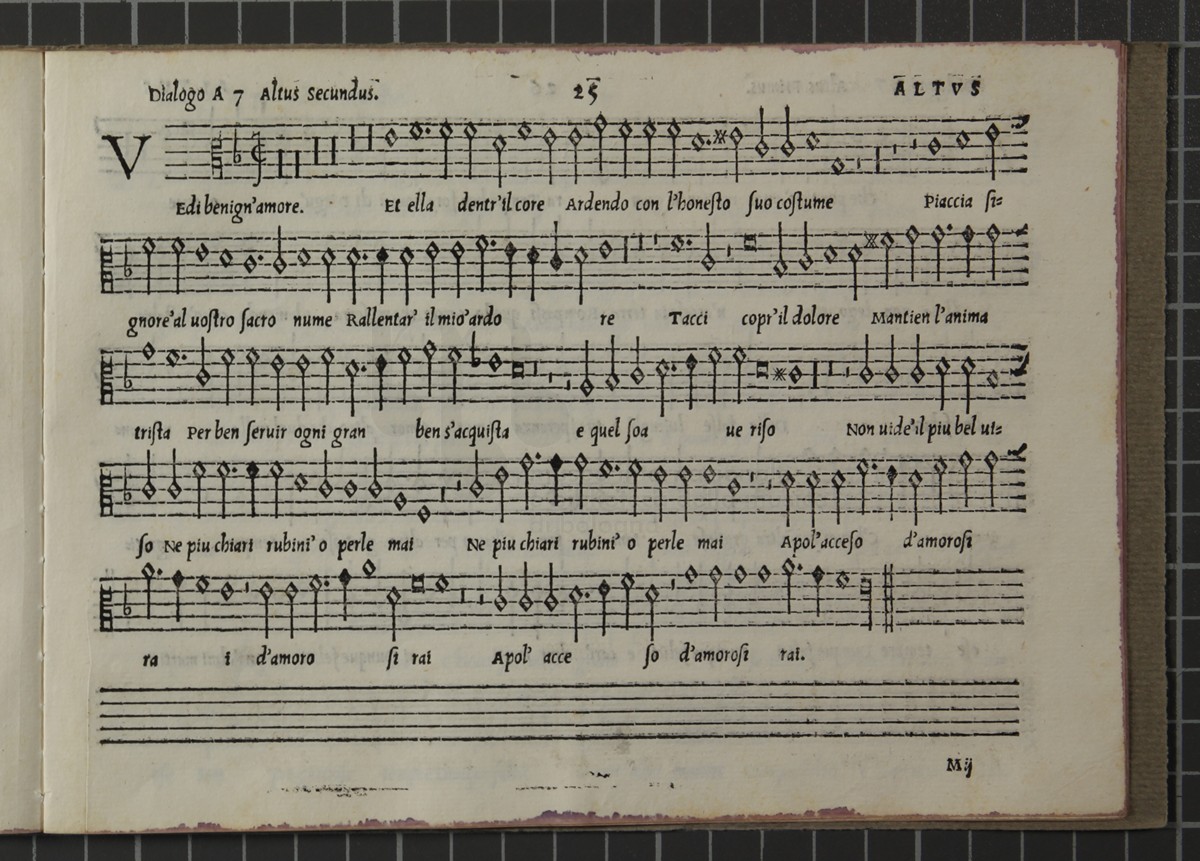 Dialogo A 7 Altus Secundus. 25 ALTVS
V
Edi benign'amore. Et ella dentr'il core Ardendo con l'honeſto ſuo coſtume Piaccia ſi=
gnore'al uoſtro ſacro nume Rallentar' il mio'ardo re Tacci copr'il dolore Mantien l'anima
triſta Per ben ſeruir ogni gran ben s'acquiſta e quel ſoa ue riſo Non uide'il piu bel ui=
ſo Ne piu chiari rubini' o perle mai Ne piu chiari rubini' o perle mai Apol'acceſo d'amoroſi
ra i d'amoro ſi rai Apol' acce ſo d'amoroſi rai.
Mij